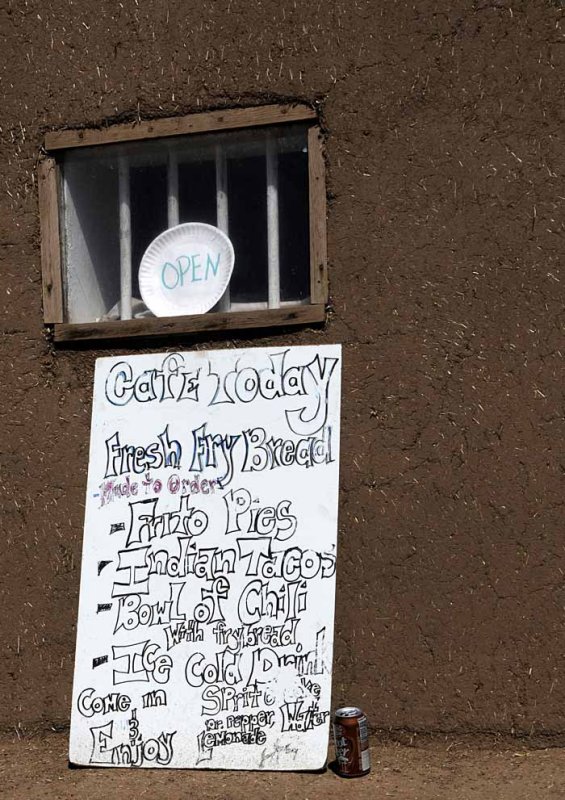 OPEN
Cafe Today
Fresh Fry Bread
-Made to Order-
-Frito Pies
-Indian Tacos
-Bowl of Chili
With frybread
-Ice Cold Drink
Come in Sprite
& Dr. Pepper, Water
Enjoy Lemonade